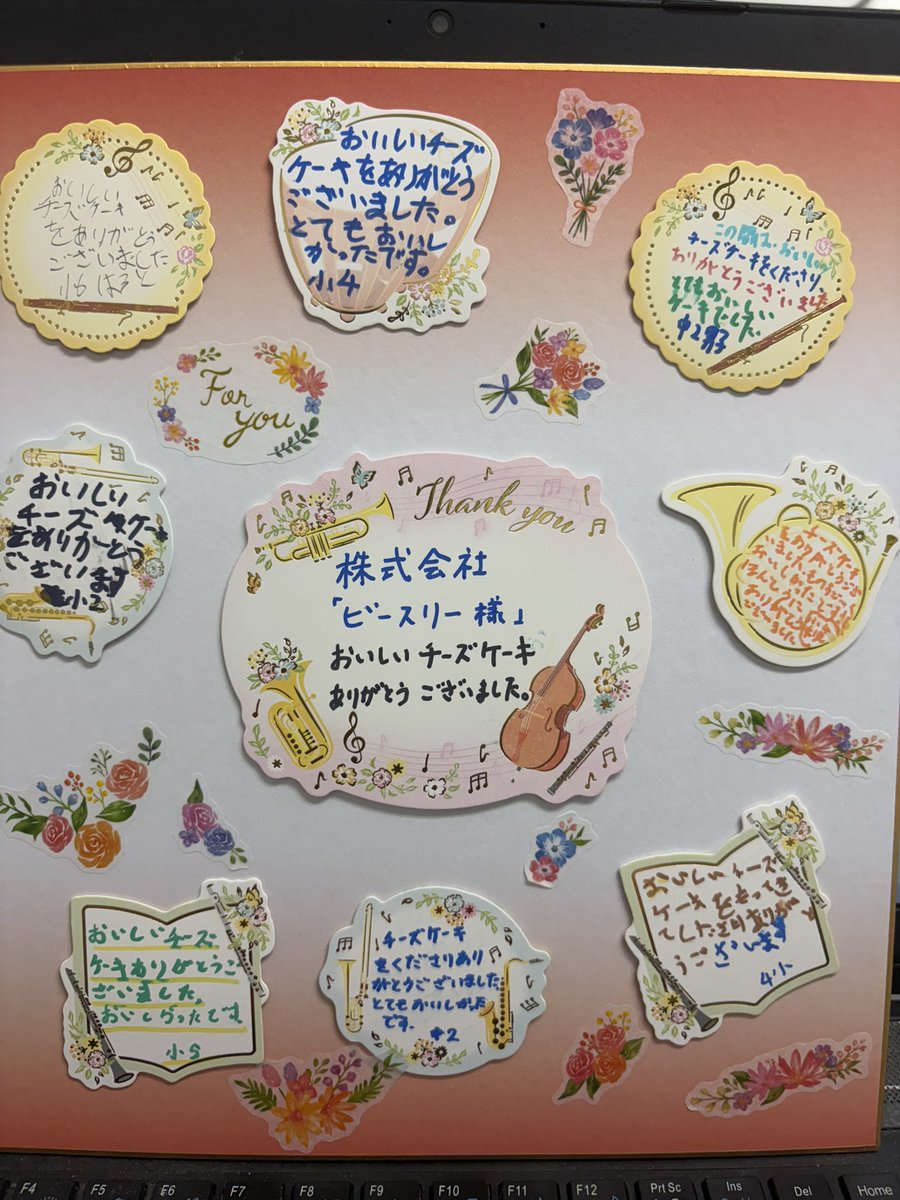 おいしい
チーズケーキ
をありがとう
ございました
小6 はると
おいしいチーズ
ケーキをありがとう
ございました。
とてもおいし
かったです。
小4
この度は、おいしい
チーズケーキをくださり
ありがとうございました
とてもおいしい
ケーキでした。
中2男子
For
you
おいしい
チーズケーキ
をありがとう
ございます
小2
Thank you
株式会社
「ビースリー様」
おいしいチーズケーキ
ありがとうございました。
チーズ
おいしいチーズ
ケーキありがとうご
ざいました。
おいしかったです
小5
チーズケーキ
をくださりあり
がとうございました
とてもおいしかった
です。
中2
おいしいチーズ
ケーキをもってき
てくださりありがと
うございます
4小
F4 F5 F6 F7 F8 F9 F10 F11 F12 PrtSc Ins Del Home
SysRq